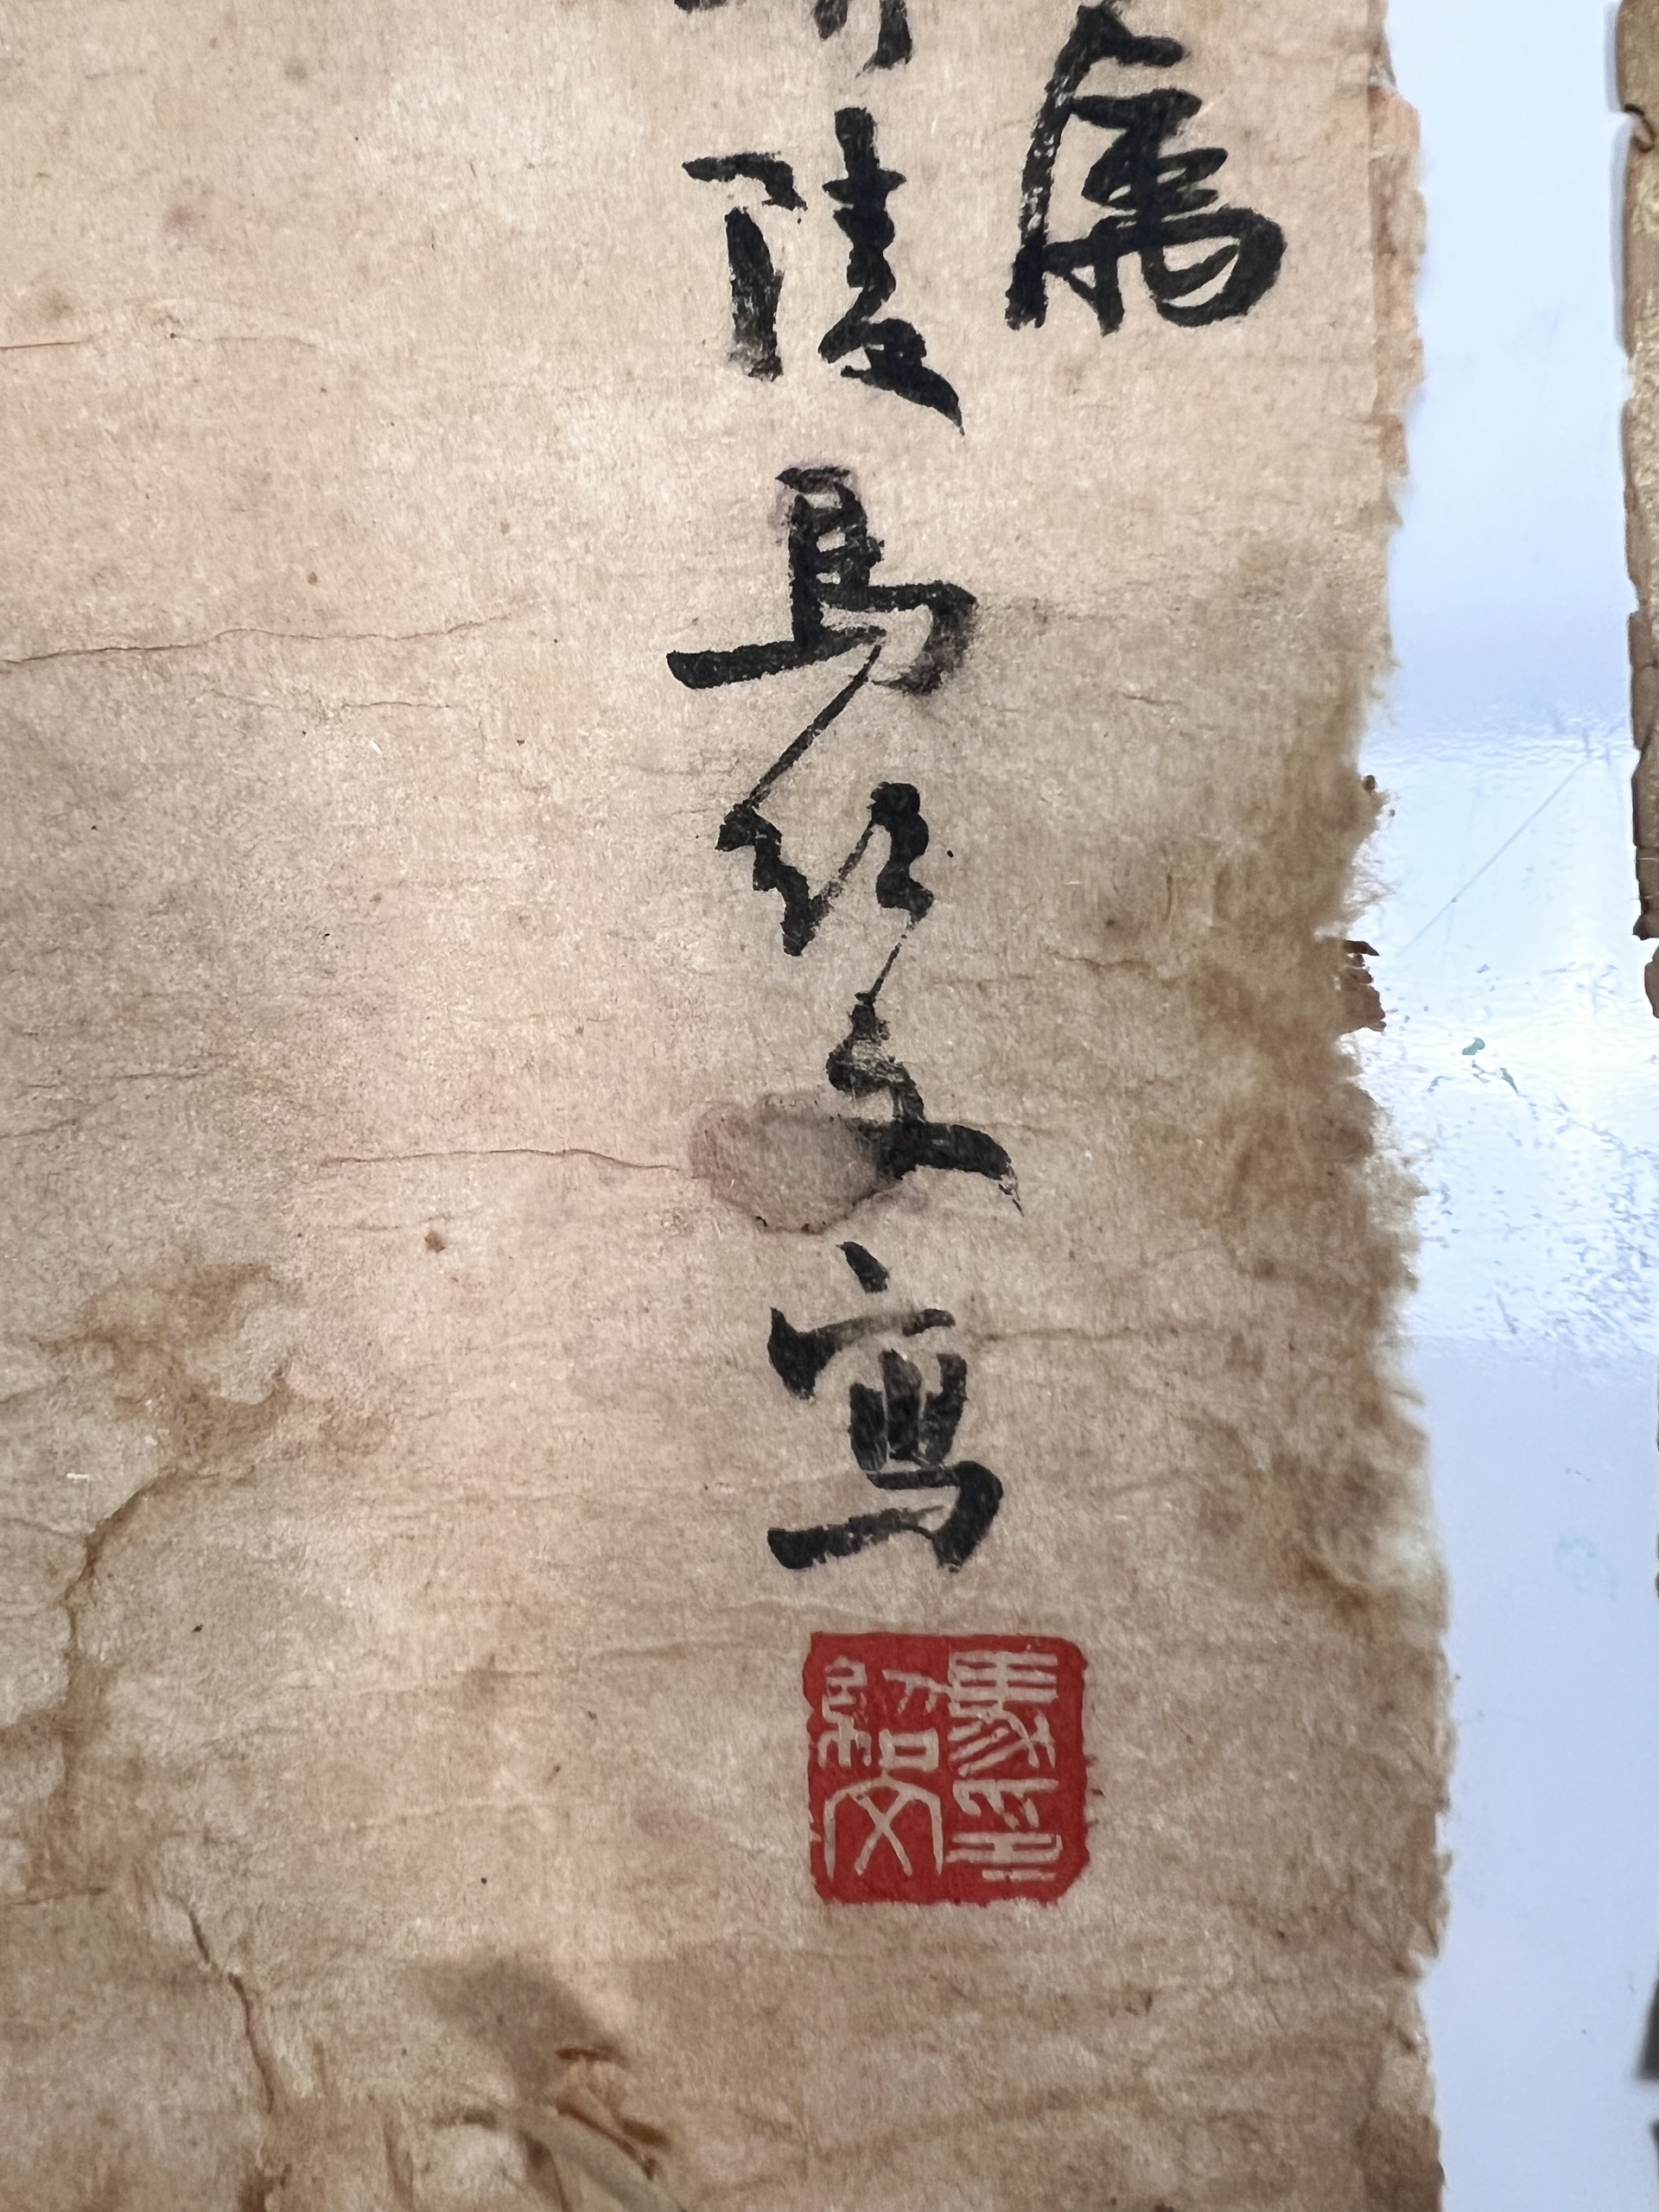 属
陵馬紹文寫
馬紹文印